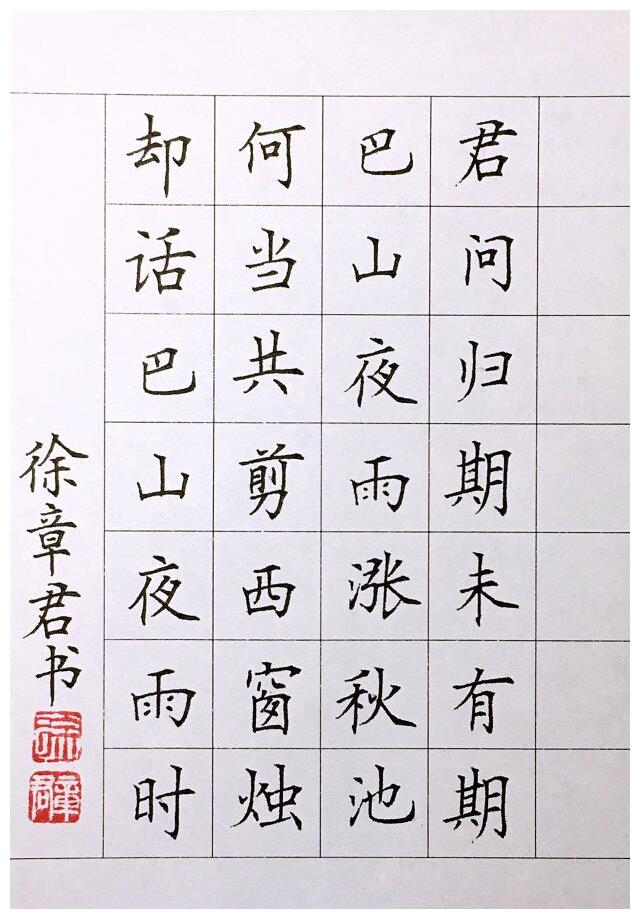 君问归期未有期
巴山夜雨涨秋池
何当共剪西窗烛
却话巴山夜雨时
徐章君书